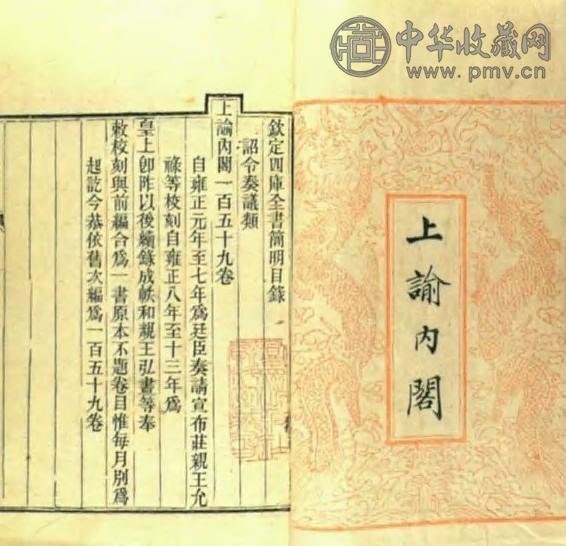 中华收藏网
www.pmv.cn
上諭内閣
欽定四庫全書簡明目錄
詔令奏議類
上諭内閣一百五十九卷
自雍正元年至七年爲廷臣奏請宣布莊親王允
祿等校刻自雍正八年至十三年爲
皇上卽阼以後續錄成帙和親王弘晝等奉
敕校刻與前編合爲一書原本不題卷目惟每月別爲
起訖今恭依舊次編爲一百五十九卷